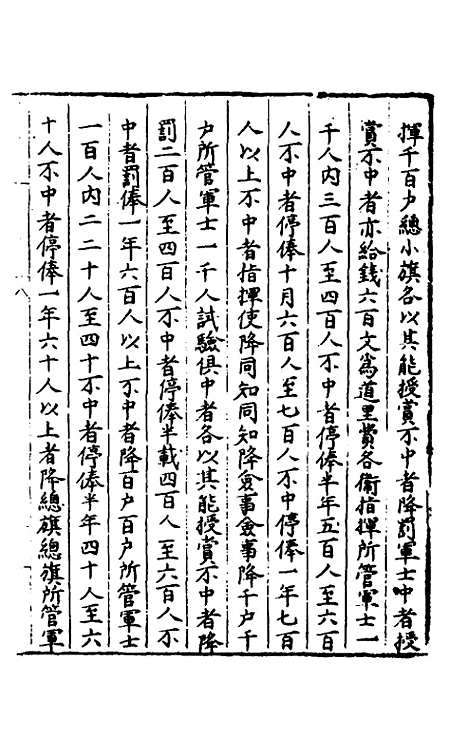 揮千百户總小旗各以其能授賞不中者降罰軍士中者授
賞不中者亦給錢六百文爲道里費各衞指揮所管軍士一
千人内三百人至四百人不中者停俸半年五百人至六百
人不中者停俸十月六百人至七百人不中停俸一年七百
人以上不中者指揮使降同知同知降僉事僉事降千户千
户所管軍士一千人試驗俱中者各以其能授賞不中者降
罰二百人至四百人不中者停俸半載四百人至六百人不
中者罰俸一年六百人以上不中者降百户百户所管軍士
一百人内二二十人至四十不中者停俸半年四十人至六
十人不中者停俸一年六十人以上者降總旗總旗所管軍